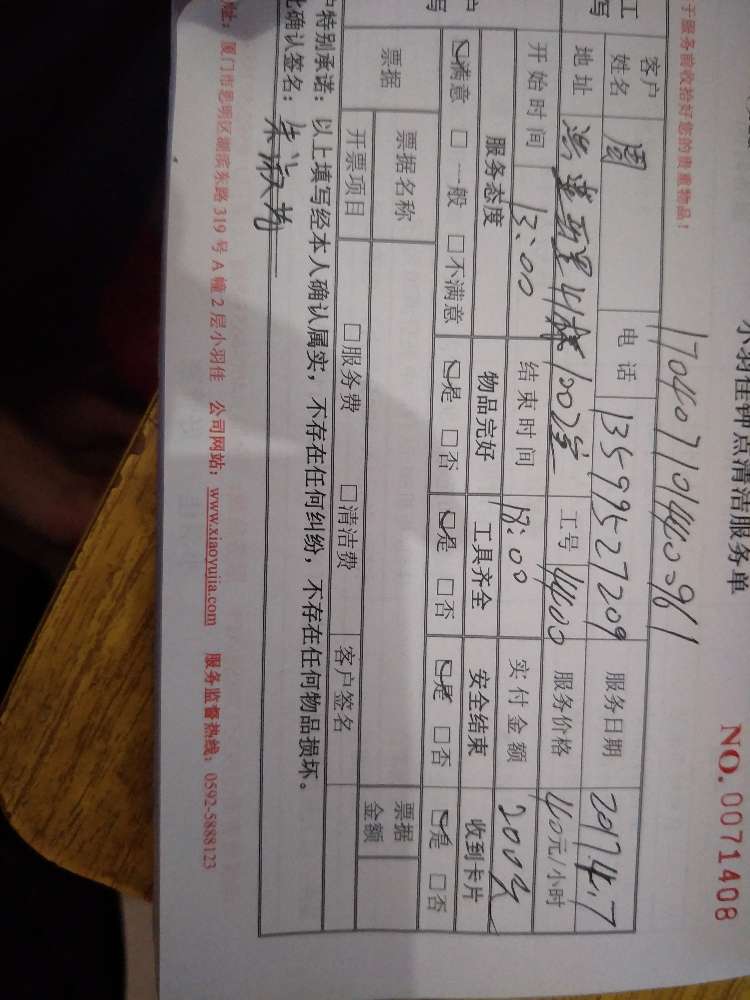 小羽佳钟点清洁服务单
NO. 0071408
于服务前收拾好您的贵重物品!
170407101440961
客户姓名 周 电话 13599527209 服务日期 2017.4.7
地址 1002室 工号 4400 服务价格 40元/小时
开始时间 13:00 结束时间 18:00 实付金额 200元
服务态度 物品完好 工具齐全 安全结束 收到卡片
☑满意 □一般 □不满意 ☑是 □否 ☑是 □否 ☑是 □否 ☑是 □否
票据 票据名称 票据金额
开票项目 □服务费 □清洁费 客户签名
户特别承诺:以上填写经本人确认属实,不存在任何纠纷,不存在任何物品损坏。
此确认签名:
地址:厦门市思明区湖滨东路 319 号 A 幢 2 层小羽佳 公司网站:www.xiaoyujia.com 服务监督热线:0592-5888123